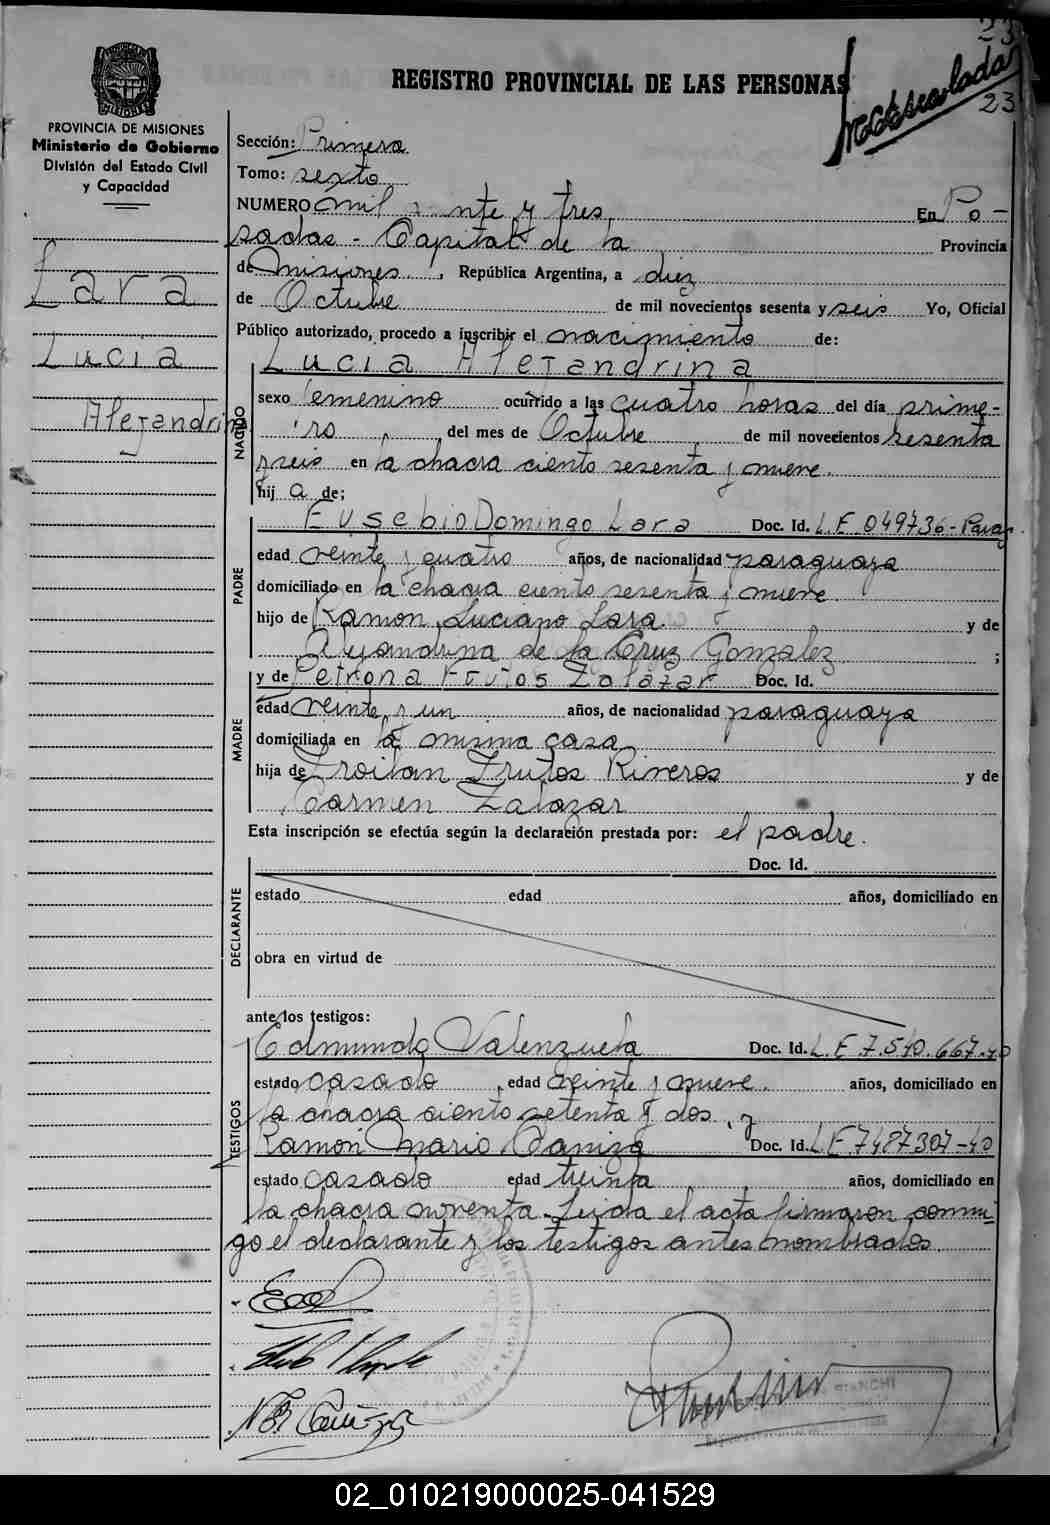 23
REGISTRO PROVINCIAL DE LAS PERSONAS
23
PROVINCIA DE MISIONES
Ministerio de Gobierno
División del Estado Civil
y Capacidad
Lara
Lucia
Alejandrina
Sección: Primera
Tomo: sexto
NUMERO mil y tres En Po-
sadas - Capital de la Provincia
de Misiones, República Argentina, a diez
de Octubre de mil novecientos sesenta y seis Yo, Oficial
Público autorizado, procedo a inscribir el nacimiento de:
Lucia Alejandrina
NACIDO
sexo femenino ocurrido a las cuatro horas del día prime-
ro del mes de Octubre de mil novecientos sesenta
y seis en la chacra ciento sesenta y nueve.
hij a de;
PADRE
Eusebio Domingo Lara Doc. Id. L.E. 049736-Parag.
edad veinte y cuatro años, de nacionalidad paraguaya
domiciliado en la chacra ciento sesenta y nueve
hijo de Ramon Luciano Lara y de
Alejandrina de la Cruz Gonzalez ;
MADRE
y de Petrona Frutos Zalazar Doc. Id.
edad veinte y un años, de nacionalidad paraguaya
domiciliada en la misma casa
hija de Froilan Frutos Riveros y de
Carmen Zalazar
Esta inscripción se efectúa según la declaración prestada por: el padre.
DECLARANTE
Doc. Id.
estado edad años, domiciliado en
obra en virtud de
ante los testigos:
TESTIGOS
Edmundo Valenzuela Doc. Id. L.E 7.540.667.40
estado casado, edad veinte y nueve. años, domiciliado en
la chacra ciento setenta y dos, y
Ramon Mario Caniza Doc. Id. L.E 7487307-40
estado casado edad treinta años, domiciliado en
la chacra noventa. Leida el acta firmaron conmi-
go el declarante y los testigos antes nombrados.
BIANCHI
02_010219000025-041529